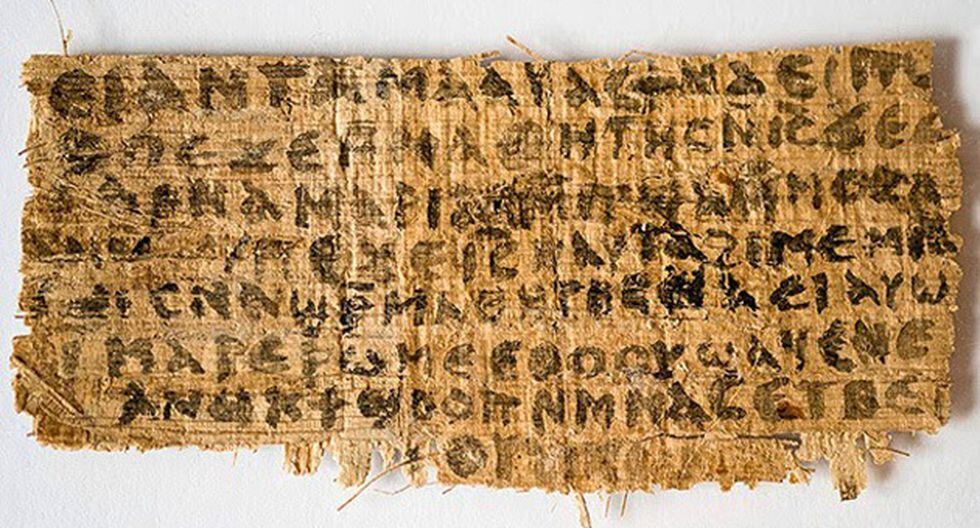 ⲉⲓ ⲁⲛ ⲧⲁⲙⲁⲁⲩ ⲁⲥϯ ⲛⲁⲉⲓ
ⲡⲉϫⲉ ⲙⲙⲁⲑⲏⲧⲏⲥ ⲛⲓ̅ⲥ̅ ϫⲉ
ⲁⲣⲛⲁ ⲙⲁⲣⲓⲁⲙ ⲙⲡϣⲁ ⲙⲙⲟⲥ ⲁ
ⲡⲉϫⲉ ⲓ̅ⲥ̅ ⲛⲁⲩ ⲧⲁϩⲓⲙⲉ ⲙⲛ
ⲥⲛⲁϣⲣ̄ⲙⲁⲑⲏⲧⲏⲥ ⲛⲁⲉⲓ ⲁⲩⲱ
ⲓ ⲙⲁⲣⲉⲣⲱⲙⲉ ⲉⲑⲟⲟⲩ ϣⲁϥⲉ ⲛⲉ
ⲁⲛⲟⲕ ϯϣⲟⲟⲡ ⲛⲙⲙⲁⲥ ⲉⲧⲃⲉ